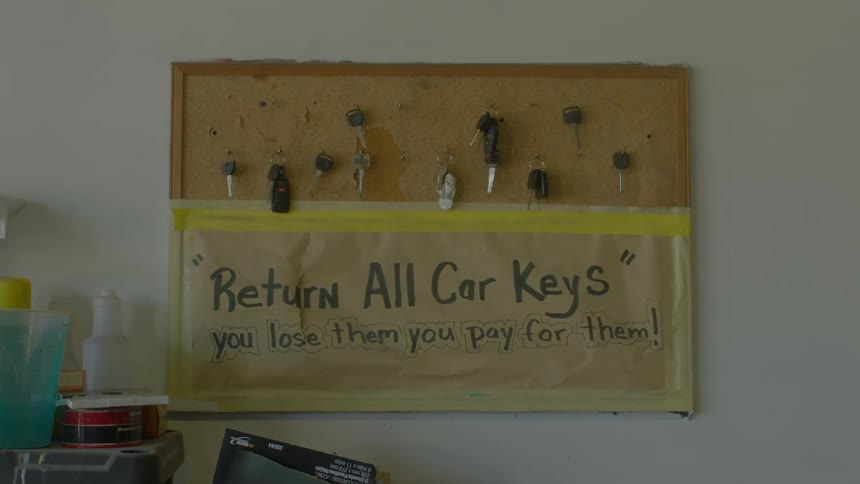 "Return All Car Keys"
you lose them you pay for them!